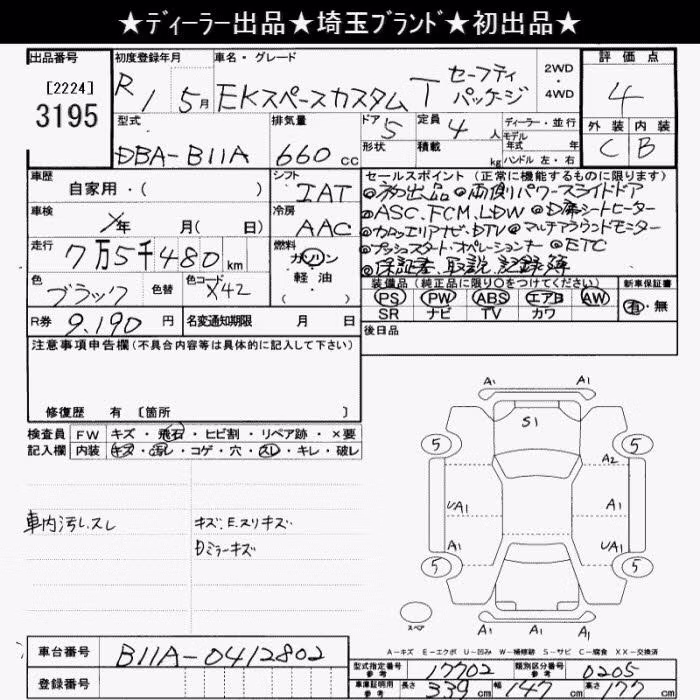 ★ディーラー出品★埼玉ブランド★初出品★
出品番号
[2224]
3195
初度登録年月
R1 5月
車名・グレード
EKスペースカスタム T セーフティパッケージ
2WD
・
4WD
評価点
4
外装 内装
C B
型式
DBA-B11A
排気量
660 cc
ドア 5
形状
定員 4 人
積載 kg
ディーラー・並行
モデル年式 年
ハンドル 左・右
車歴
自家用・( )
シフト
IAT
車検
年 月( 日)
冷房
AAC
走行
7万5千480 km
燃料
ガソリン
軽油
( )
色
ブラック
色替
色コード
X42
R券 9,190 円
名変通知期限 月 日
セールスポイント(正常に機能するものに限ります)
◎初出品 ◎両側パワースライドドア
◎ASC.FCM.LDW ◎D席シートヒーター
◎カロッエリアナビ.DTV ◎マルチアラウンドモニター
◎プッシュスタート・オペレーションキー ◎ETC
◎保証書、取説、記録簿
装備品(純正品に限り○をつけてください)
PS PW ABS エアB AW
SR ナビ TV カワ
新車保証書
有・無
後日品
注意事項申告欄(不具合内容等は具体的に記入して下さい)
修復歴 有 〔箇所 〕
検査員記入欄
FW キズ・飛石・ヒビ割・リペア跡・×要
内装 キズ・汚レ・コゲ・穴・スレ・キレ・破レ
車内汚レ、スレ
キズ:E.スリキズ
Dミラーキズ
A1 A1
S1
5 5
A2
UA1 A1
A1 UA1
5 5
スペア
A1 A1 A1
A-キズ E-エクボ U-凹み W-補修跡 S-サビ C-腐食 XX-交換済
車台番号
B11A-0412802
登録番号
型式指定番号 参考
17702
類別区分番号 参考
0205
車庫証明用 参考
長さ 339 cm 幅 147 cm 高さ 177 cm